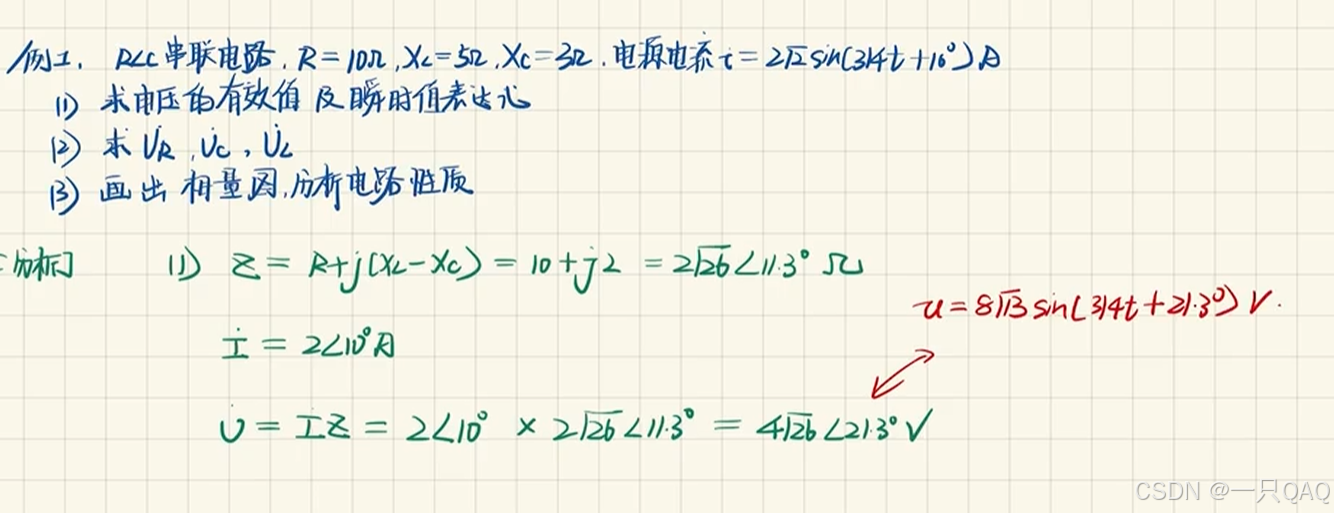 例1. RLC串联电路. R=10Ω, XL=5Ω, XC=3Ω. 电源电流 i=2√2sin(314t+10°)A
(1) 求电压的有效值及瞬时值表达式
(2) 求 U̇R, U̇C, U̇L
(3) 画出相量图, 分析电路性质
[分析] (1) Z = R+j(XL-XC) = 10+j2 = 2√26∠11.3° Ω
u=8√13sin(314t+21.3°)V.
İ = 2∠10°A
U̇ = İZ = 2∠10° × 2√26∠11.3° = 4√26∠21.3°V
CSDN @一只QAQ